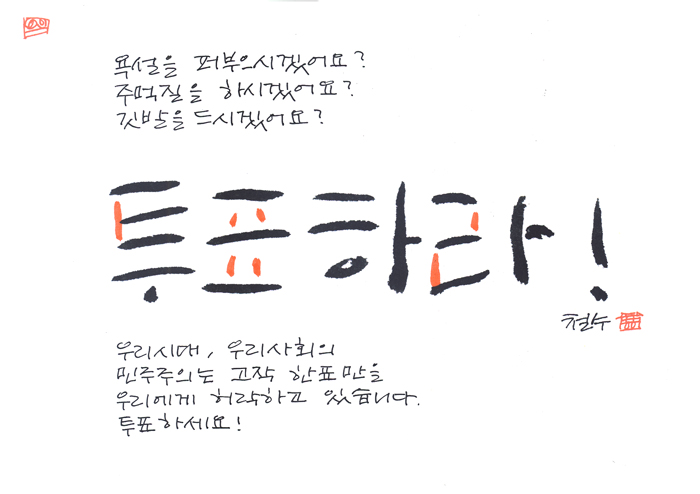 욕설을 퍼부으시겠어요?
주먹질을 하시겠어요?
깃발을 드시겠어요?
투표하라!
철수
우리시대, 우리사회의
민주주의는 고작 한표만을
우리에게 허락하고 있습니다.
투표하세요!